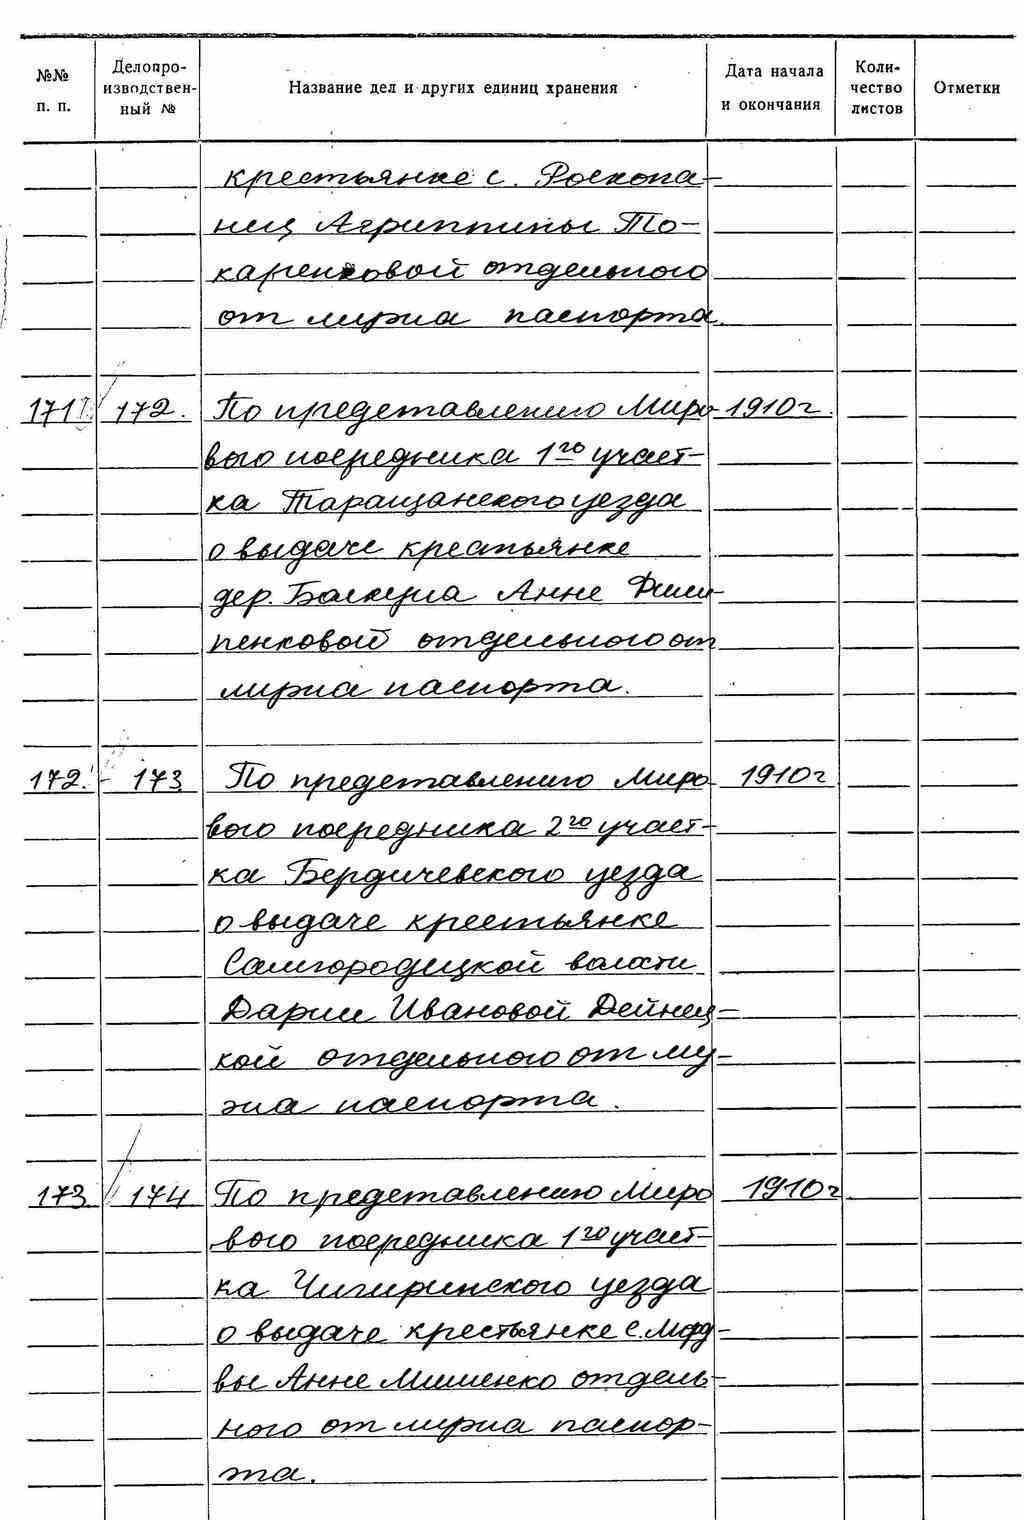 №№ п. п.
Делопроизводственный №
Название дел и других единиц хранения
Дата начала и окончания
Количество листов
Отметки
крестьянке с. Роскопа-
ниц Агриппины То-
каренковой отдельного
от мужа паспорта.
171 172. По представлению Миро- 1910 г.
вого посредника 1го участ-
ка Таращанского уезда
о выдаче крестьянке
дер. Анне Фили-
пенковой отдельного от
мужа паспорта.
172. - 173 По представлению Миро- 1910 г
вого посредника 2го участ-
ка Бердичевского уезда
о выдаче крестьянке
Самгородецкой волости
Дарии Ивановой Дейнец-
кой отдельного от му-
жа паспорта.
173 174 По представлению Миро 1910 г
вого посредника 1го участ-
ка Чигиринского уезда
о выдаче крестьянке с. Мдд-
вы Анне Мишенко отдель-
ного от мужа паспор-
та.